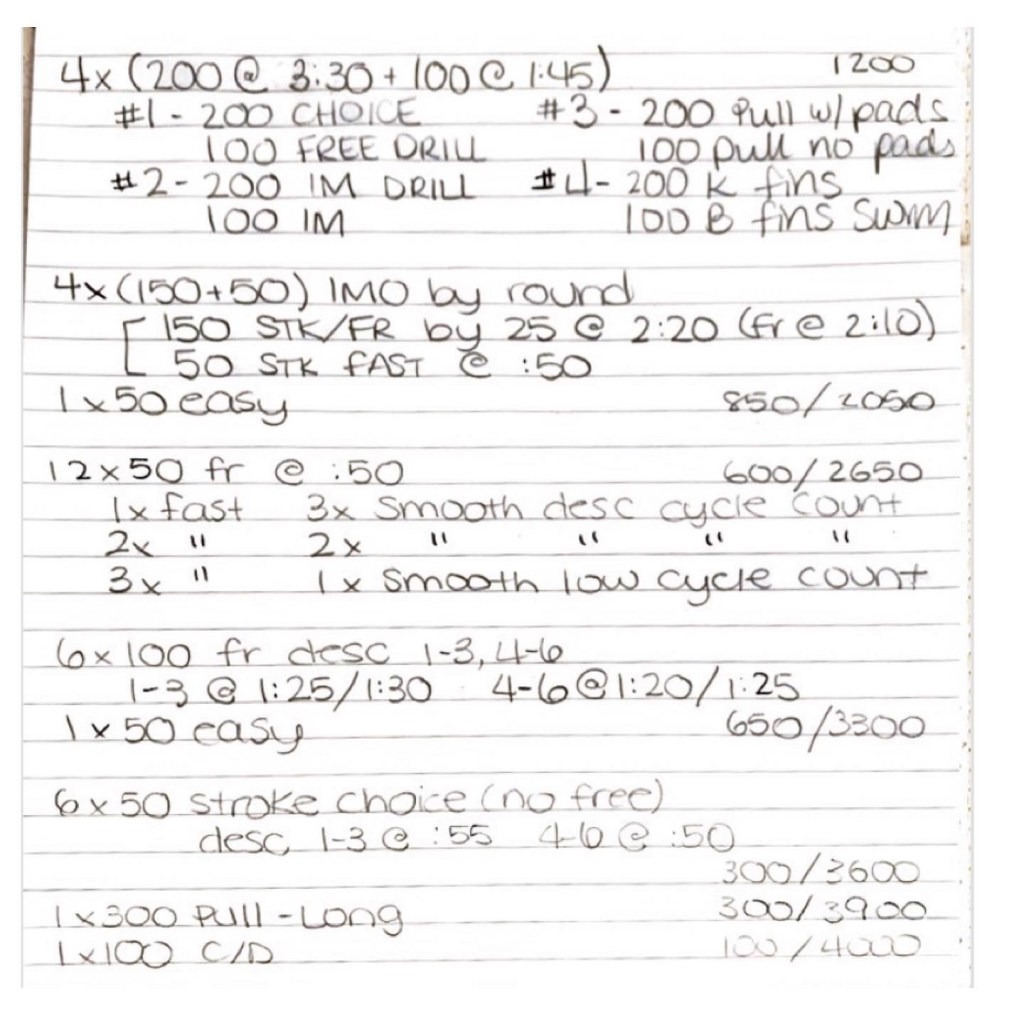 4x (200 @ 3:30 + 100 @ 1:45) 1200
#1 - 200 CHOICE #3 - 200 Pull w/ pads
100 FREE DRILL 100 pull no pads
#2 - 200 IM DRILL #4 - 200 K fins
100 IM 100 B fins swim
4x (150+50) IMO by round
150 STK/FR by 25 @ 2:20 (fr @ 2:10)
50 STK FAST @ :50
1x50 easy 850/2050
12x50 fr @ :50 600/2650
1x fast 3x smooth desc cycle count
2x " 2x " " " "
3x " 1x smooth low cycle count
6x100 fr desc 1-3, 4-6
1-3 @ 1:25/1:30 4-6 @ 1:20/1:25
1x50 easy 650/3300
6x50 stroke choice (no free)
desc 1-3 @ :55 4-6 @ :50
300/3600
1x300 Pull - Long 300/3900
1x100 C/D 100/4000